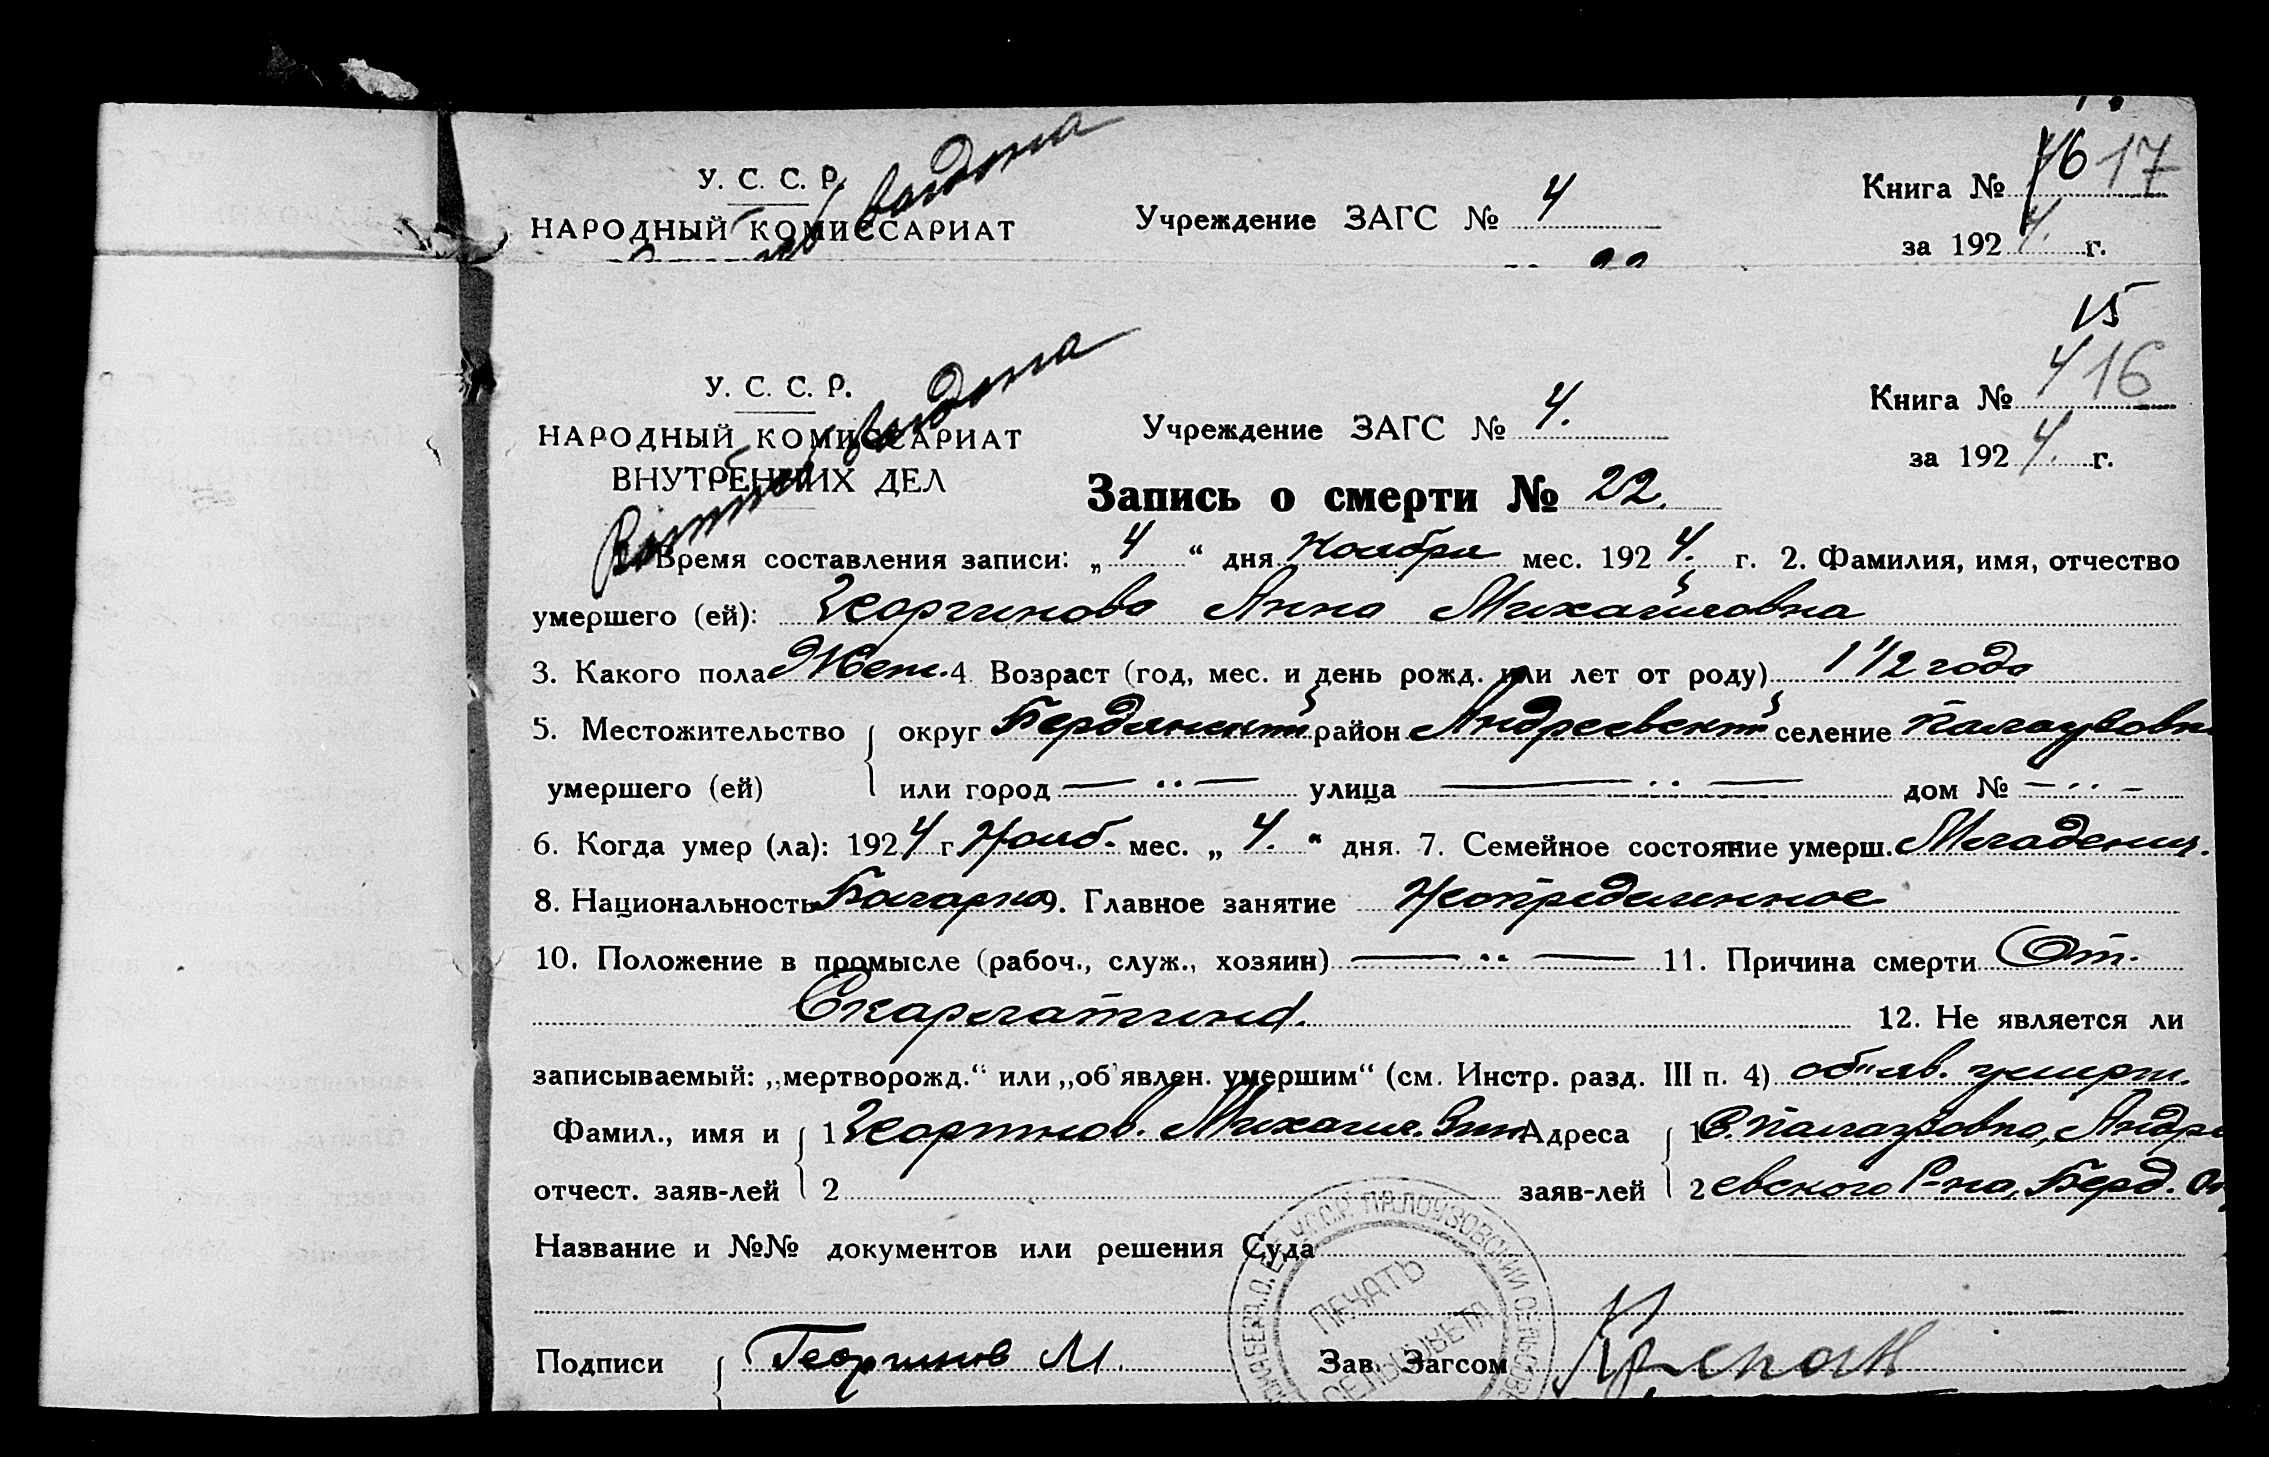 У. С. С. Р.
НАРОДНЫЙ КОМИССАРИАТ
Учреждение ЗАГС № 4
Книга № 17
за 1924. г.
15
У. С. С. Р.
НАРОДНЫЙ КОМИССАРИАТ
ВНУТРЕННИХ ДЕЛ
Учреждение ЗАГС № 4.
Книга № 4 16
за 1924. г.
Запись о смерти № 22.
1. Время составления записи: „4“ дня Ноября мес. 1924. г. 2. Фамилия, имя, отчество
умершего (ей): Георгинова Анна Михайловна
3. Какого пола Жен. 4. Возраст (год, мес. и день рожд. или лет от роду) 1 1/2 года
5. Местожительство округ Бердянский район Андреевский селение Палаузовк
умершего (ей) или город — ·· — улица — ·· — дом № — ·· —
6. Когда умер (ла): 1924 г. Нояб. мес. „4.“ дня. 7. Семейное состояние умерш. Младениц.
8. Национальность Болгарка 9. Главное занятие Неопределенное
10. Положение в промысле (рабоч., служ., хозяин) — ·· — 11. Причина смерти От.
Скарлатины. 12. Не является ли
записываемый: „мертворожд.“ или „об'явлен. умершим“ (см. Инстр. разд. III п. 4) об"яв. умерш.
Фамил., имя и 1 Георгинов. Михаил. Адреса 1 с. Палаузовка, Андре
отчест. заяв-лей 2 заяв-лей 2 евского Р-на, Берд. Ок
Название и №№ документов или решения Суда
У.С.С.Р. ПАЛОУЗОВСКИЙ СЕЛЬСОВЕ
ПЕЧАТЬ
СЕЛЬСОВЕТА
Подписи Георгинов М. Зав. Загсом